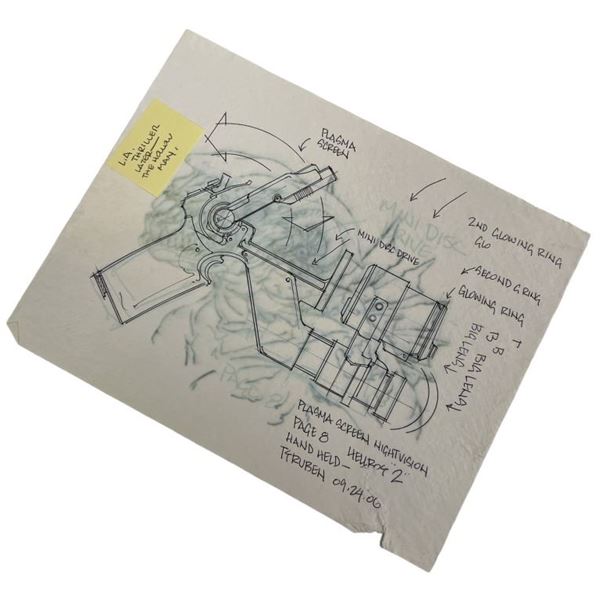 L.A.
THRILLER
LATER—
THE HOLLOW
MAN.
PLASMA
SCREEN
MINI DISC
DRIVE
MINI DISC DRIVE
2ND GLOWING RING
GLO
SECOND G RING
GLOWING RING
BIG LENS
BIG LENS
PLASMA SCREEN NIGHTVISION
PAGE 8 HELLBOY "2"
HAND HELD—
TYRUBEN 09.24.06